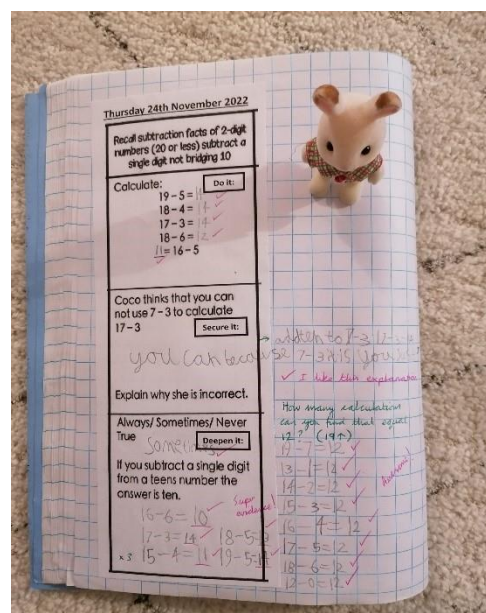 Thursday 24th November 2022
Recall subtraction facts of 2-digit
numbers (20 or less) subtract a
single digit not bridging 10
Calculate:
Do it:
19-5=
18-4=14
17-3=14
18-6=12
11=16-5
Coco thinks that you can
not use 7-3 to calculate
17-3
Secure it:
you can because 7-3 is
add ten to 7-3
✓ I like this explanation
Explain why she is incorrect.
Always/ Sometimes/ Never
True
Deepen it:
Sometimes
If you subtract a single digit
from a teens number the
answer is ten.
16-6=10
Super
evidence!
17-3=14
18-5=13
x3
15-4=11
19-5=14
How many calculations
can you find that equal
12? (19↑)
19-7=12
13-1=12
14-2=12
Awesome!
15-3=12
16-4=12
17-5=12
18-6=12
12-0=12